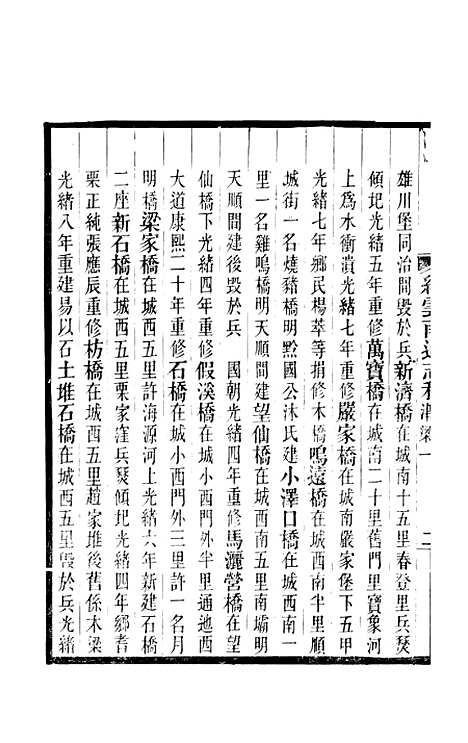 續雲南通志稿 津梁一 二
雄川堡同治間毀於兵新濟橋在城南十五里春登里兵燹
傾圮光緒五年重修萬寶橋在城南二十里舊門里寶象河
上爲水衝潰光緒七年重修嚴家橋在城南嚴家堡下五甲
光緒七年鄉民楊萃等捐修木橋鳴遠橋在城西南半里順
城街一名燒豬橋明黔國公沐氏建小澤口橋在城西南一
里一名雞鳴橋明天順間建望仙橋在城西南五里南壩明
天順間建後毀於兵 國朝光緒四年重修馬灑營橋在望
仙橋下光緒四年重修假溪橋在城小西門外半里通池西
大道康熙二十年重修石橋在城小西門外三里許一名月
明橋梁家橋在城西五里許海源河上光緒六年新建石橋
二座新石橋在城西五里栗家窪兵燹傾圮光緒四年鄉耆
栗正純張應辰重修枋橋在城西五里趙家堆後舊係木梁
光緒八年重建易以石土堆石橋在城西五里毀於兵光緒